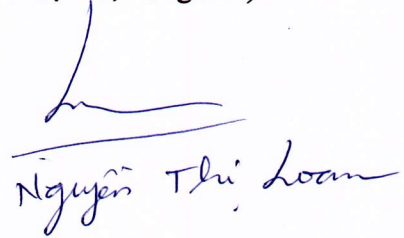 Nguyễn Thị Loan